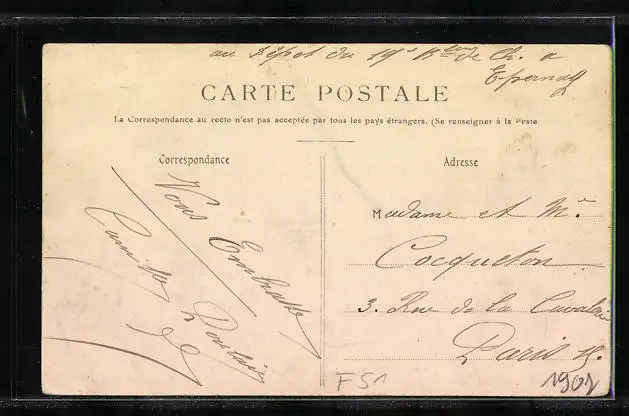 au Dépôt du 19e Bon de Ch. a
Epernay
CARTE POSTALE
La Correspondance au recto n'est pas acceptée par tous les pays étrangers. (Se renseigner à la Poste
Correspondance
Adresse
Vous Embrasse
Camille
Madame et Mr.
Cocqueton
3. Rue de la Cavalerie
Paris 15.
F51
1902